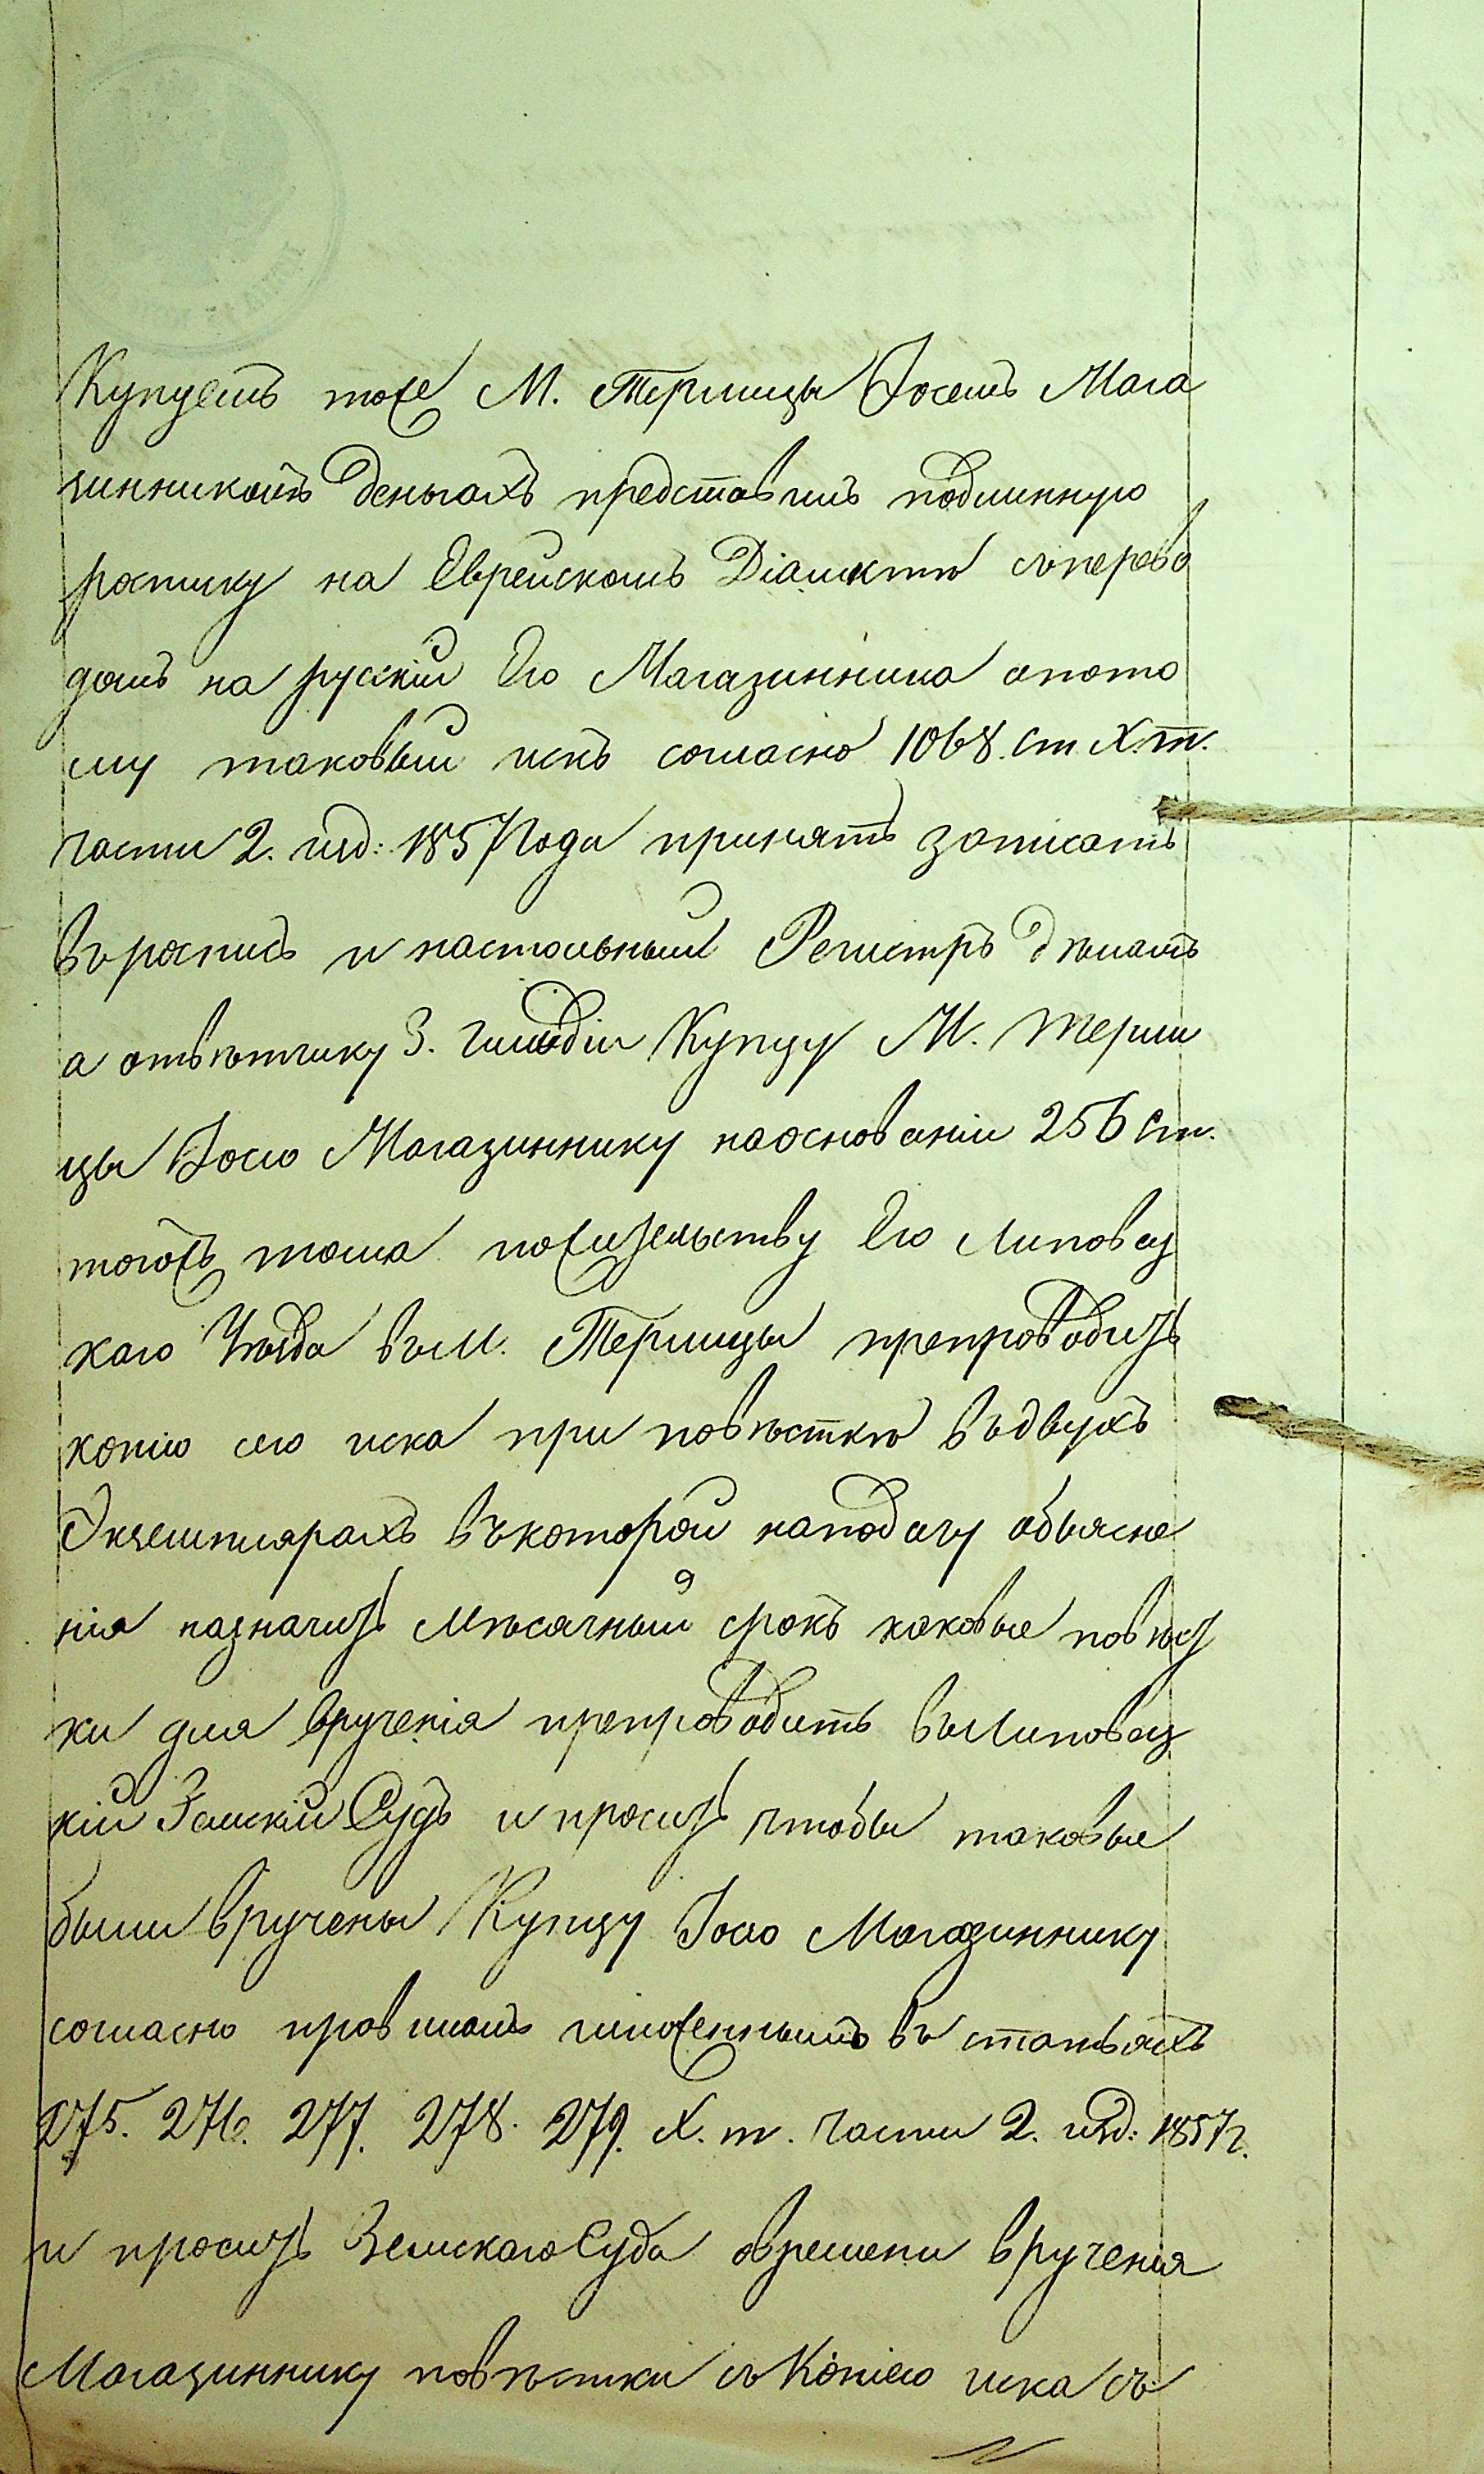 Купцемъ тоже М. Терлицы Іосемъ Мага
зинникомъ деньгахъ представилъ подлинную
росписку на Еврейскомъ Діалектѣ съперево
домъ на русскій Его Магазинника апото
му таковый искъ согласно 1068. ст. X. т.
части 2. изд: 1857 года принять записать
Въроспись и настольный Регистръ дѣламъ
а отвѣтчику 3. Гильдіи Купцу М. Терли
цы Іосю Магазиннику наоснованіи 256 ст.
тогожъ тома пожительству Его Липовец
каго Уѣзда въ М. Терлицы препроводить
копію сего иска при повѣсткѣ Въдвухъ
Экземплярахъ Въкоторой наподачу объясне
нія назначить Мѣсячный срокъ каковые повѣст
ки для Врученія препроводить въ Липовец
кій Земскій Судъ и просить чтобы таковые
были вручены Купцу Іосю Магазиннику
согласно правиламъ изложеннымъ въ статьяхъ
275. 276. 277. 278. 279. X. т. части 2. изд: 1857 г.
и просить Земскаго Суда овремени врученія
Магазиннику повѣстки съ Копіею иска съ